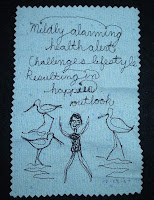 Mildly alarming
health alert
Challenges lifestyle
Resulting in
happier
outlook